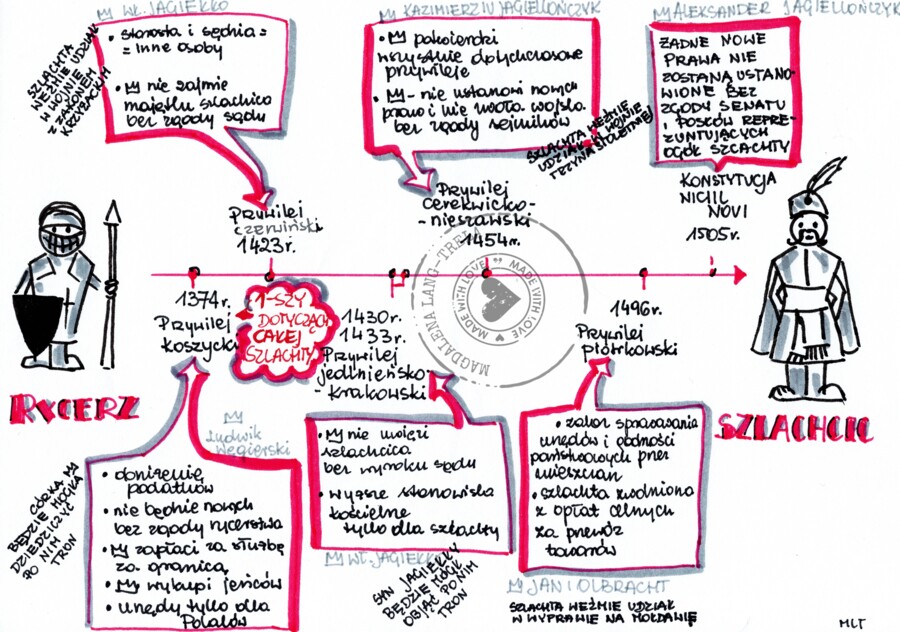 WŁ. JAGIEŁŁO
SZLACHTA
WEŹMIE UDZIAŁ
W WOJNIE
Z ZAKONEM
KRZYŻACKIM
• starosta i sędzia =
= inne osoby
• nie zajmie
majątku szlachcica
bez zgody sądu
KAZIMIERZ IV JAGIELLOŃCZYK
• potwierdzi
wszystkie dotychczasowe
przywileje
• - nie ustanowi nowych
praw i nie zwoła wojska
bez zgody sejmików
SZLACHTA WEŹMIE
UDZIAŁ W WOJNIE
TRZYNASTOLETNIEJ
ALEKSANDER JAGIELLOŃCZYK
ŻADNE NOWE
PRAWA NIE
ZOSTANĄ USTANO-
WIONE BEZ
ZGODY SENATU
I POSŁÓW REPRE-
ZUNTUJĄCYCH
OGÓŁ SZLACHTY
Przywilej
czerwiński
1423r.
Przywilej
cerekwicko-
- nieszawski
1454r.
KONSTYTUCJA
NIHIL
NOVI
1505r.
1374r.
Przywilej
Koszycki
1-SZY
DOTYCZĄCY
CAŁEJ
SZLACHTY
1430r.
1433r.
Przywilej
jedlnieńsko-
- krakowski
MAGDALENA LANG-TRELA
MADE WITH LOVE
MADE WITH LOVE
1496r.
Przywilej
piotrkowski
RYCERZ
SZLACHCIC
Ludwik
Węgierski
CÓRKA
BĘDZIE MOGŁA
DZIEDZICZYĆ
PO NIM
TRON
• obniżenie
podatków
• nie będzie nowych
bez zgody rycerstwa
• zapłaci za służbę
za granicą
• wykupi jeńców
• urzędy tylko dla
Polaków
• nie uwięzi
szlachcica
bez wyroku sądu
• wyższe stanowiska
kościelne
tylko dla szlachty
WŁ. JAGIEŁŁO
SYN JAGIEŁŁY
BĘDZIE MÓGŁ
OBJĄĆ PO NIM
TRON
• zakaz sprawowania
urzędów i godności
państwowych przez
mieszczan
• szlachta zwolniona
z opłat celnych
za przewóz
towarów
JAN I OLBRACHT
SZLACHTA WEŹMIE UDZIAŁ
W WYPRAWIE NA MOŁDAWIĘ
MLT